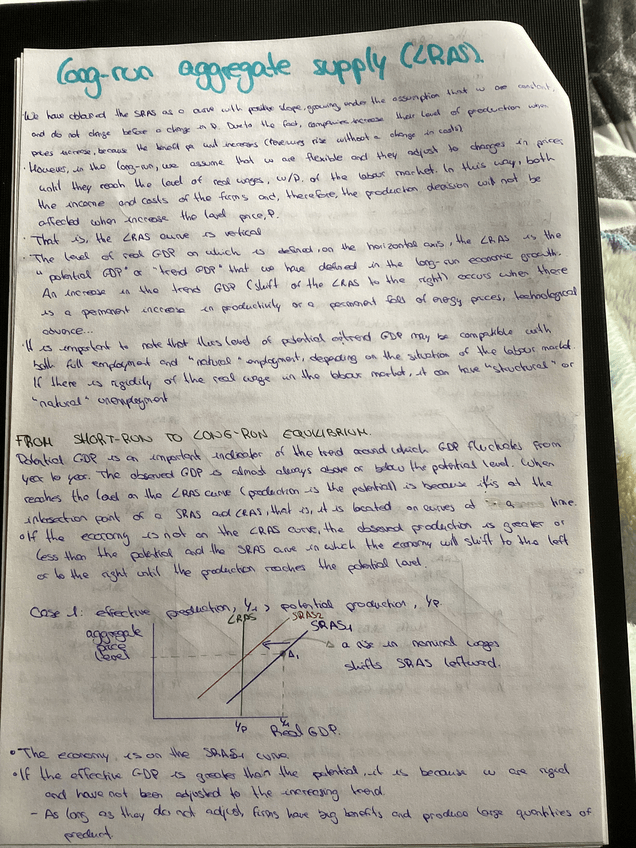 Long-run aggregate supply (LRAS).
· We have obtained the SRAS as a curve with positive slope, growing under the assumption that w are constant
and do not change before a change in P. Due to the fact, companies increase their level of production when
prices increase, because the benefit per unit increases (revenues rise without a change in costs)
· However, in the long-run, we assume that w are flexible and they adjust to changes in prices
until they reach the level of real wages, w/P, of the labour market. In this way, both
the income and costs of the firms and, therefore, the production decision will not be
affected when increase the level price, P.
· That is, the LRAS curve is vertical
· The level of real GDP on which is defined, on the horizontal axis, the LRAS is the
"potential GDP" or "trend GDP" that we have defined in the long-run economic growth.
An increase in the trend GDP (shift of the LRAS to the right) occurs when there
is a permanent increase in productivity or a permanent fall of energy prices, technological
advance...
· It is important to note that this level of potential or trend GDP may be compatible with
both full employment and "natural" employment, depending on the situation of the labour market.
If there is rigidity of the real wage in the labour market, it can have "structural" or
"natural" unemployment
FROM SHORT-RUN TO LONG-RUN EQUILIBRIUM.
Potential GDP is an important indicator of the trend around which GDP fluctuates from
year to year. The observed GDP is almost always above or below the potential level. When
reaches the level on the LRAS curve (production is the potential) is because it is at the
intersection point of a SRAS and LRAS, that is, it is located on curves at a time.
• If the economy is not on the LRAS curve, the observed production is greater or
less than the potential and the SRAS curve in which the economy will shift to the left
or to the right until the production reaches the potential level.
Case 1: effective production, Y1 > potential production, YP
LRAS SRAS2
aggregate price level
SRAS1
A1
a rise in nominal wages
shifts SRAS leftward.
YP Y1
Real GDP.
• The economy is on the SRAS1 curve
• If the effective GDP is greater than the potential, it is because w are rigid
and have not been adjusted to the increasing trend.
- As long as they do not adjust, firms have big benefits and produce large quantities of
product.